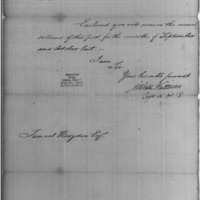 Enclosed you will receive the muster
returns of this post for the months of September
and October last.
I am
Sir
Your humble servant
Capt
Samuel Hodgdon Esq.